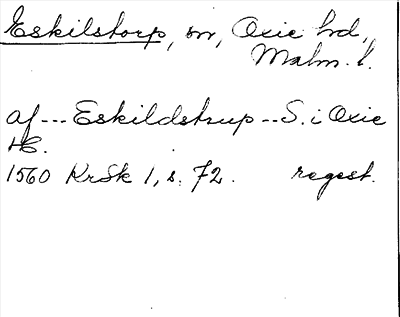 Eskilstorp, sn, Oxie hd,
Malm. l.
af --- Eskildstrup -- S. i Oxie
H.
1560 KrSk 1, s. 72. regest.